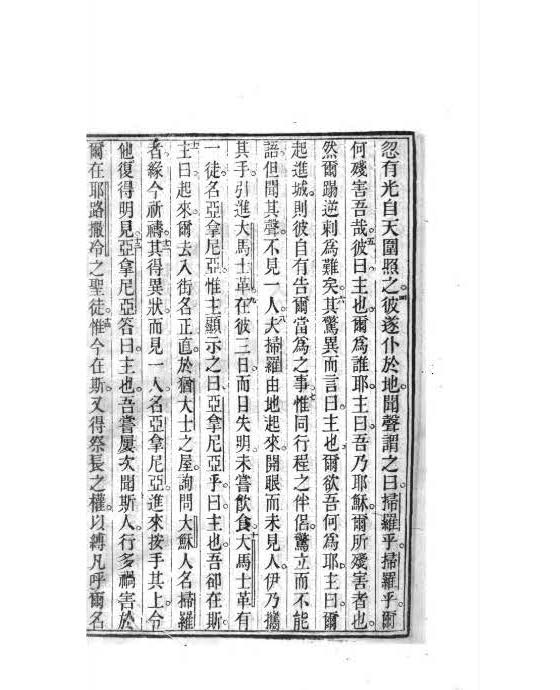 忽有光自天圍照之。四彼遂仆於地聞聲謂之曰掃羅乎掃羅乎爾
何殘害吾哉。五彼曰主也爾爲誰耶主曰吾乃耶穌爾所殘害者也。
然爾踢逆刺爲難矣。六其驚異而言曰主也爾欲吾何爲耶主曰爾
起進城則彼自有告爾當爲之事。七惟同行程之伴侶驚立而不能
語但聞其聲不見一人。八夫掃羅由地起來開眼而未見人伊乃攜
其手引進大馬士革。九在彼三日而目失明未嘗飲食。十大馬士革有
一徒名亞拿尼亞惟主顯示之曰亞拿尼亞乎曰主也吾卻在斯。
十一主曰起來爾去入街名正直於猶大士之屋詢問大穌人名掃羅
者緣今祈禱。十二其得異狀而見一人名亞拿尼亞進來按手其上令
他復得明見。十三亞拿尼亞答曰主也吾嘗屢次聞斯人行多禍害於
爾在耶路撒冷之聖徒。十四惟今在斯又得祭長之權以縛凡呼爾名